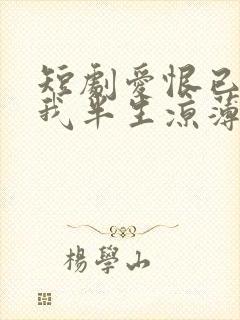 短劇愛恨已
我半生涼薄
楊學山